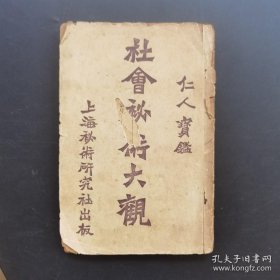 仁人寳鑑
社會祕術大觀
上海祕術研究社出版
孔夫子旧书网